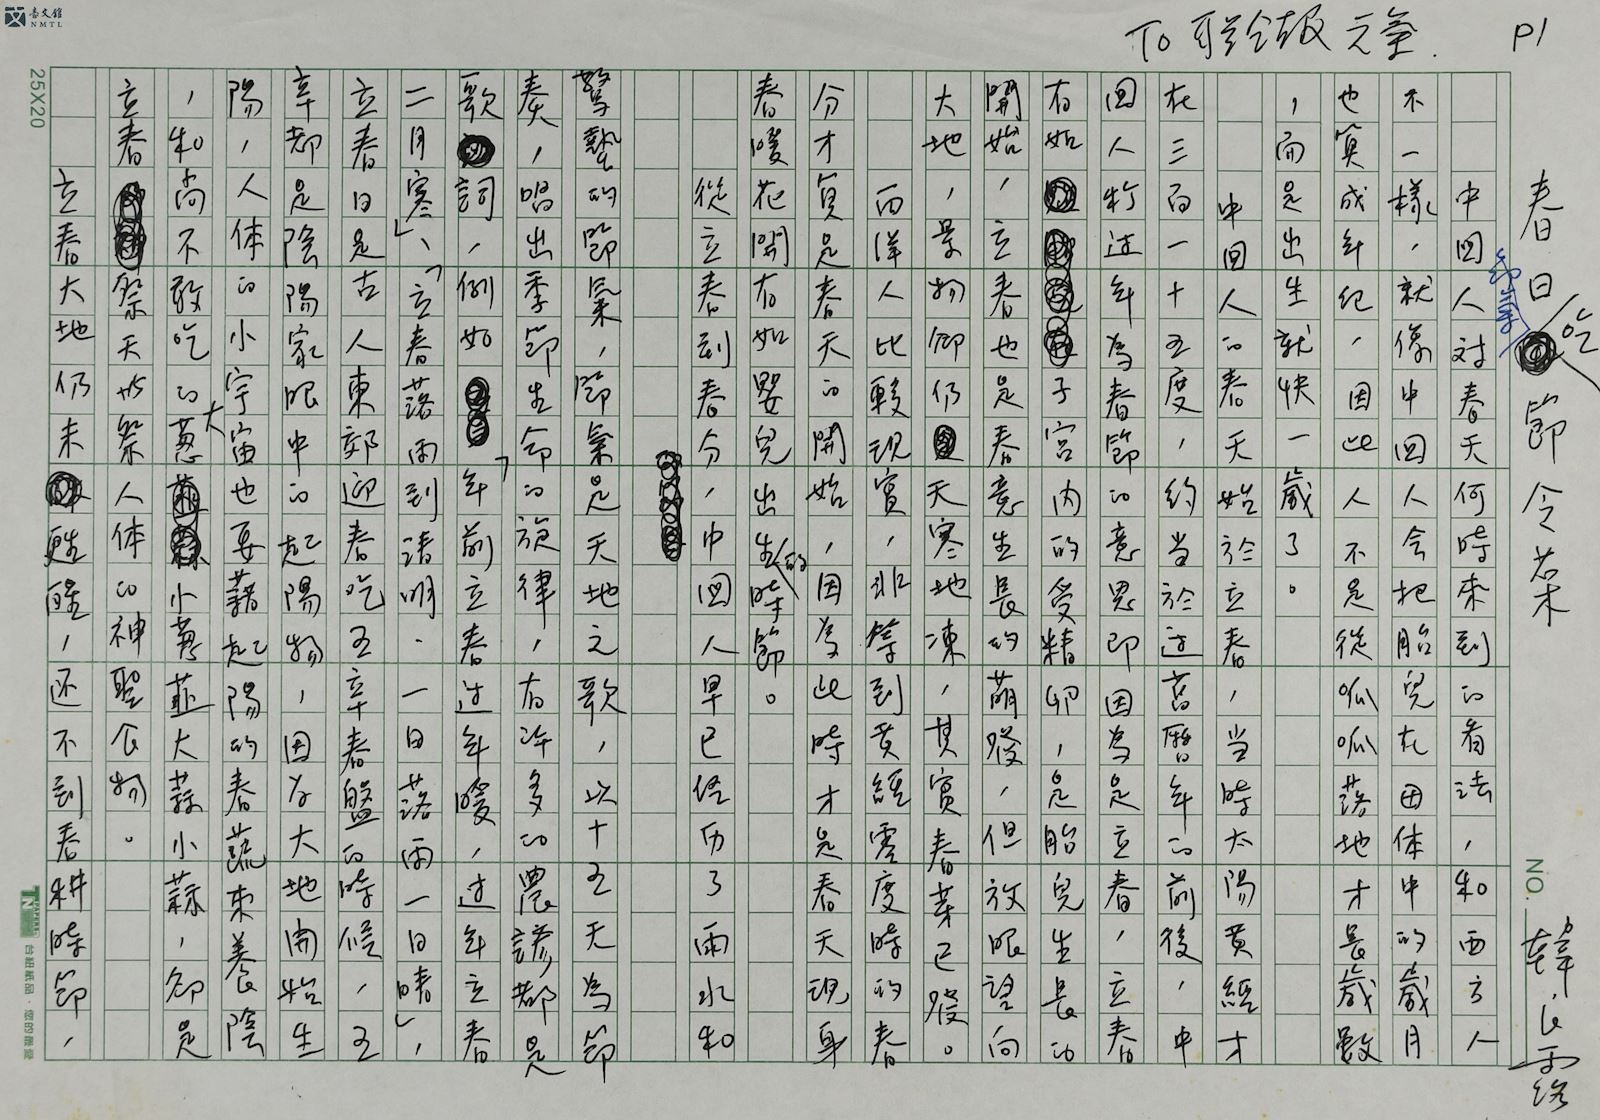 臺文館
NMTL
To 聯合報 元馨.
P1
春日吃節令菜
韓良露
NO.
中国人对春天何時來到的看法，和西方人
不一樣，就像中国人会把胎兒在母体中的歲月
也算成年紀，因此人不是從呱呱落地才長歲數
，而是出生就快一歲了。
中国人的春天始於立春，当時太陽黃經才
在三百一十五度，約当於过舊曆年的前後，中
国人称过年為春節的意思即因為是立春，立春
有如子宮內的受精卵，是胎兒生長的
開始，立春也是春意生長的萌發，但放眼望向
大地，景物卻仍天寒地凍，其實春芽已發。
西洋人比較現實，非等到黃經零度時的春
分才算是春天的開始，因為此時才是春天現身
春暖花開有如嬰兒出生的時節。
從立春到春分，中国人早已经历了雨水和
驚蟄的節氣，節氣是天地之歌，以十五天為節
奏，唱出季節生命的旋律，有许多的農諺都是
歌詞，例如「年前立春过年暖，过年立春
二月寒」、「立春落雨到清明.一日落雨一日晴」，
立春日是古人東郊迎春吃五辛春盤的時候，五
辛都是陰陽家眼中的起陽物，因为大地開始生
陽，人体的小宇宙也要藉起陽的春蔬來養陰
，和尚不敢吃的大蔥小蔥韮大蒜小蒜，卻是
立春祭天与祭人体的神聖食物。
立春大地仍未甦醒，还不到春耕時節，
25X20
TN
PAPER